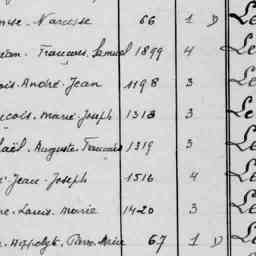 Narcisse 66 1 D Le
François. Samuel 1899 4 Le
ois. André. Jean 1198 3 Le
çois. Marie. Joseph 1313 3 Le
aël. Auguste. François 1319 3 Le
Jean. Joseph 1516 4 Le
Louis. Marie 1420 3 Le
Hippolyte. Pierre. Marie 67 1 D Le